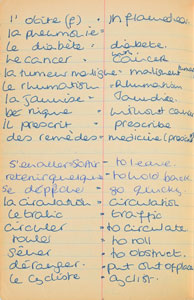 l'otite (f) - inflamed ear
la pneumonie -
le diabète - diabete
le cancer - cancer
la tumeur maligne - malignant
le rhumatism - Rhumatism
la jaunisse - Jaundice
bénigne - without cover
il prescrit - prescribe
des remèdes - medicine
s'enaller-Sortir - to leave.
retenir quelque - to hold back
se déplacer - go quickly
la circulation - circulation
le trafic - traffic
circuler - to circulate
rouler - to roll
gêner - to obstruct.
déranger - put out of place
le cycliste - cyclist.